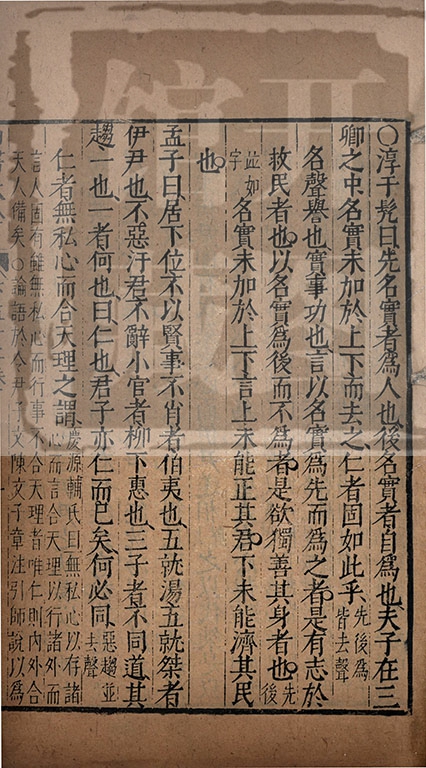 ○淳于髡曰先名實者爲人也後名實者自爲也夫子在三
卿之中名實未加於上下而去之仁者固如此乎先後爲皆去聲
名聲譽也實事功也言以名實爲先而爲之者是有志於
救民者也以名實爲後而不爲者是欲獨善其身者也先後
並如字名實未加於上下言上未能正其君下未能濟其民
也
孟子曰居下位不以賢事不肖者伯夷也五就湯五就桀者
伊尹也不惡汙君不辭小官者柳下惠也三子者不同道其
趨一也一者何也曰仁也君子亦仁而已矣何必同惡趨並去聲
仁者無私心而合天理之謂慶源輔氏曰無私心以存諸心而言合天理以行諸外而
言人固有雖無私心而行事不合天理者唯仁則內外合
天人備矣○論語於令尹子文陳文子章注引師說以爲